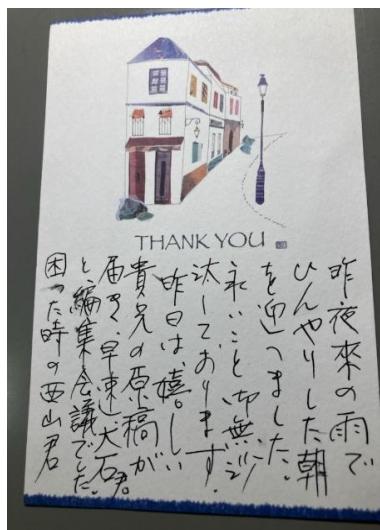 THANK YOU
昨夜來の雨で
ひんやりした朝
を迎へました。
永いこと御無沙
汰しております。
昨日は、嬉しい
貴兄の原稿が
届き、早速、大石君
と、編集会議でした。
困った時の西山君